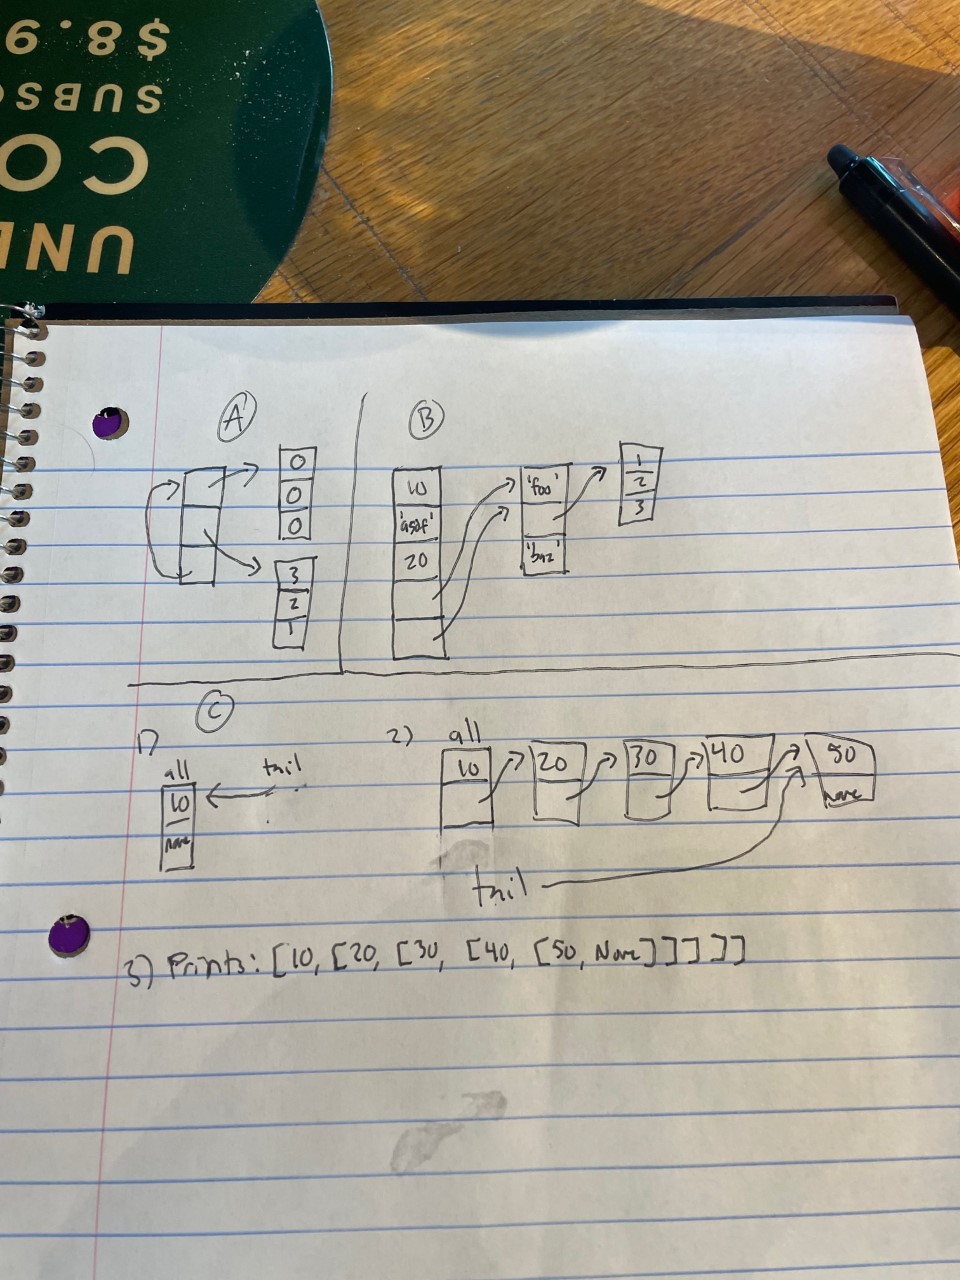 $8.9
SUBSC
CO
UNI
A
0
0
0
3
2
1
B
10
'asdf'
20
'foo'
'baz'
1
2
3
C
1)
all
tail
10
None
2)
all
10
20
30
40
50
None
tail
3) Prints: [10, [20, [30, [40, [50, None]]]]]